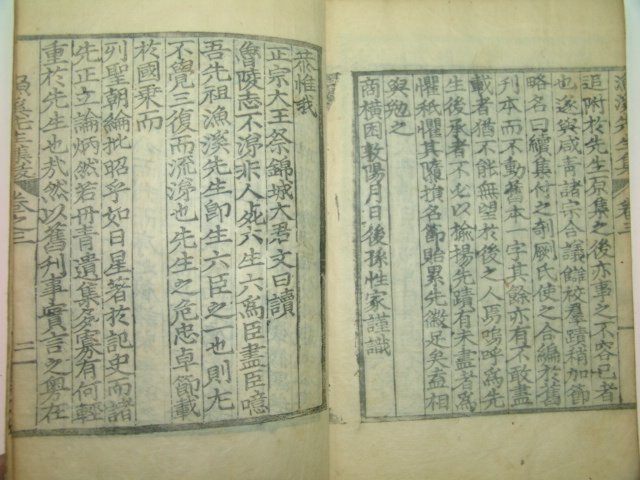 漁溪先生集 卷三
追附於先生原集之後亦事之不容已者
也遂與咸靑諸宗合議讎校羣蹟稍加節
略名曰續集付之剞劂氏使之合編於舊
刊本而不動舊本一字其餘亦有不敢盡
載者猶不能無望於後之人焉嗚呼爲先
生後承者不以揄揚先蹟有未盡者爲
懼秖懼其隳損名節貽累先徽足矣盍相
與勉之
商橫困敦陽月日後孫性家謹識
恭惟我
正宗大王祭錦城大君文曰讀
魯陵志不涕非人死六生六爲臣盡臣噫
吾先祖漁溪先生卽生六臣之一也則尤
不覺三復而流涕也先生之危忠卓節載
於國乘而
列聖朝綸批昭乎如日星著於記史而諸
先正立論炳然若丹靑遺集多寡有何輕
重於先生也哉然以舊刊事實言之粤在
漁溪先生集跋 卷之三 二